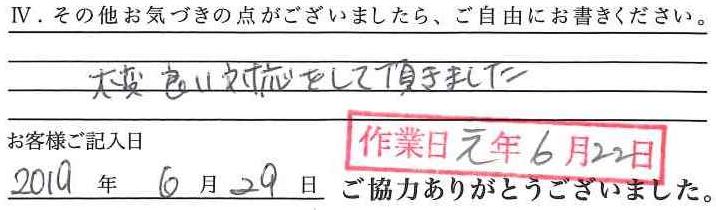 Ⅳ．その他お気づきの点がございましたら、ご自由にお書きください。
大変良い対応をして頂きました
お客様ご記入日
作業日元年6月22日
2019年 6月29日
ご協力ありがとうございました。